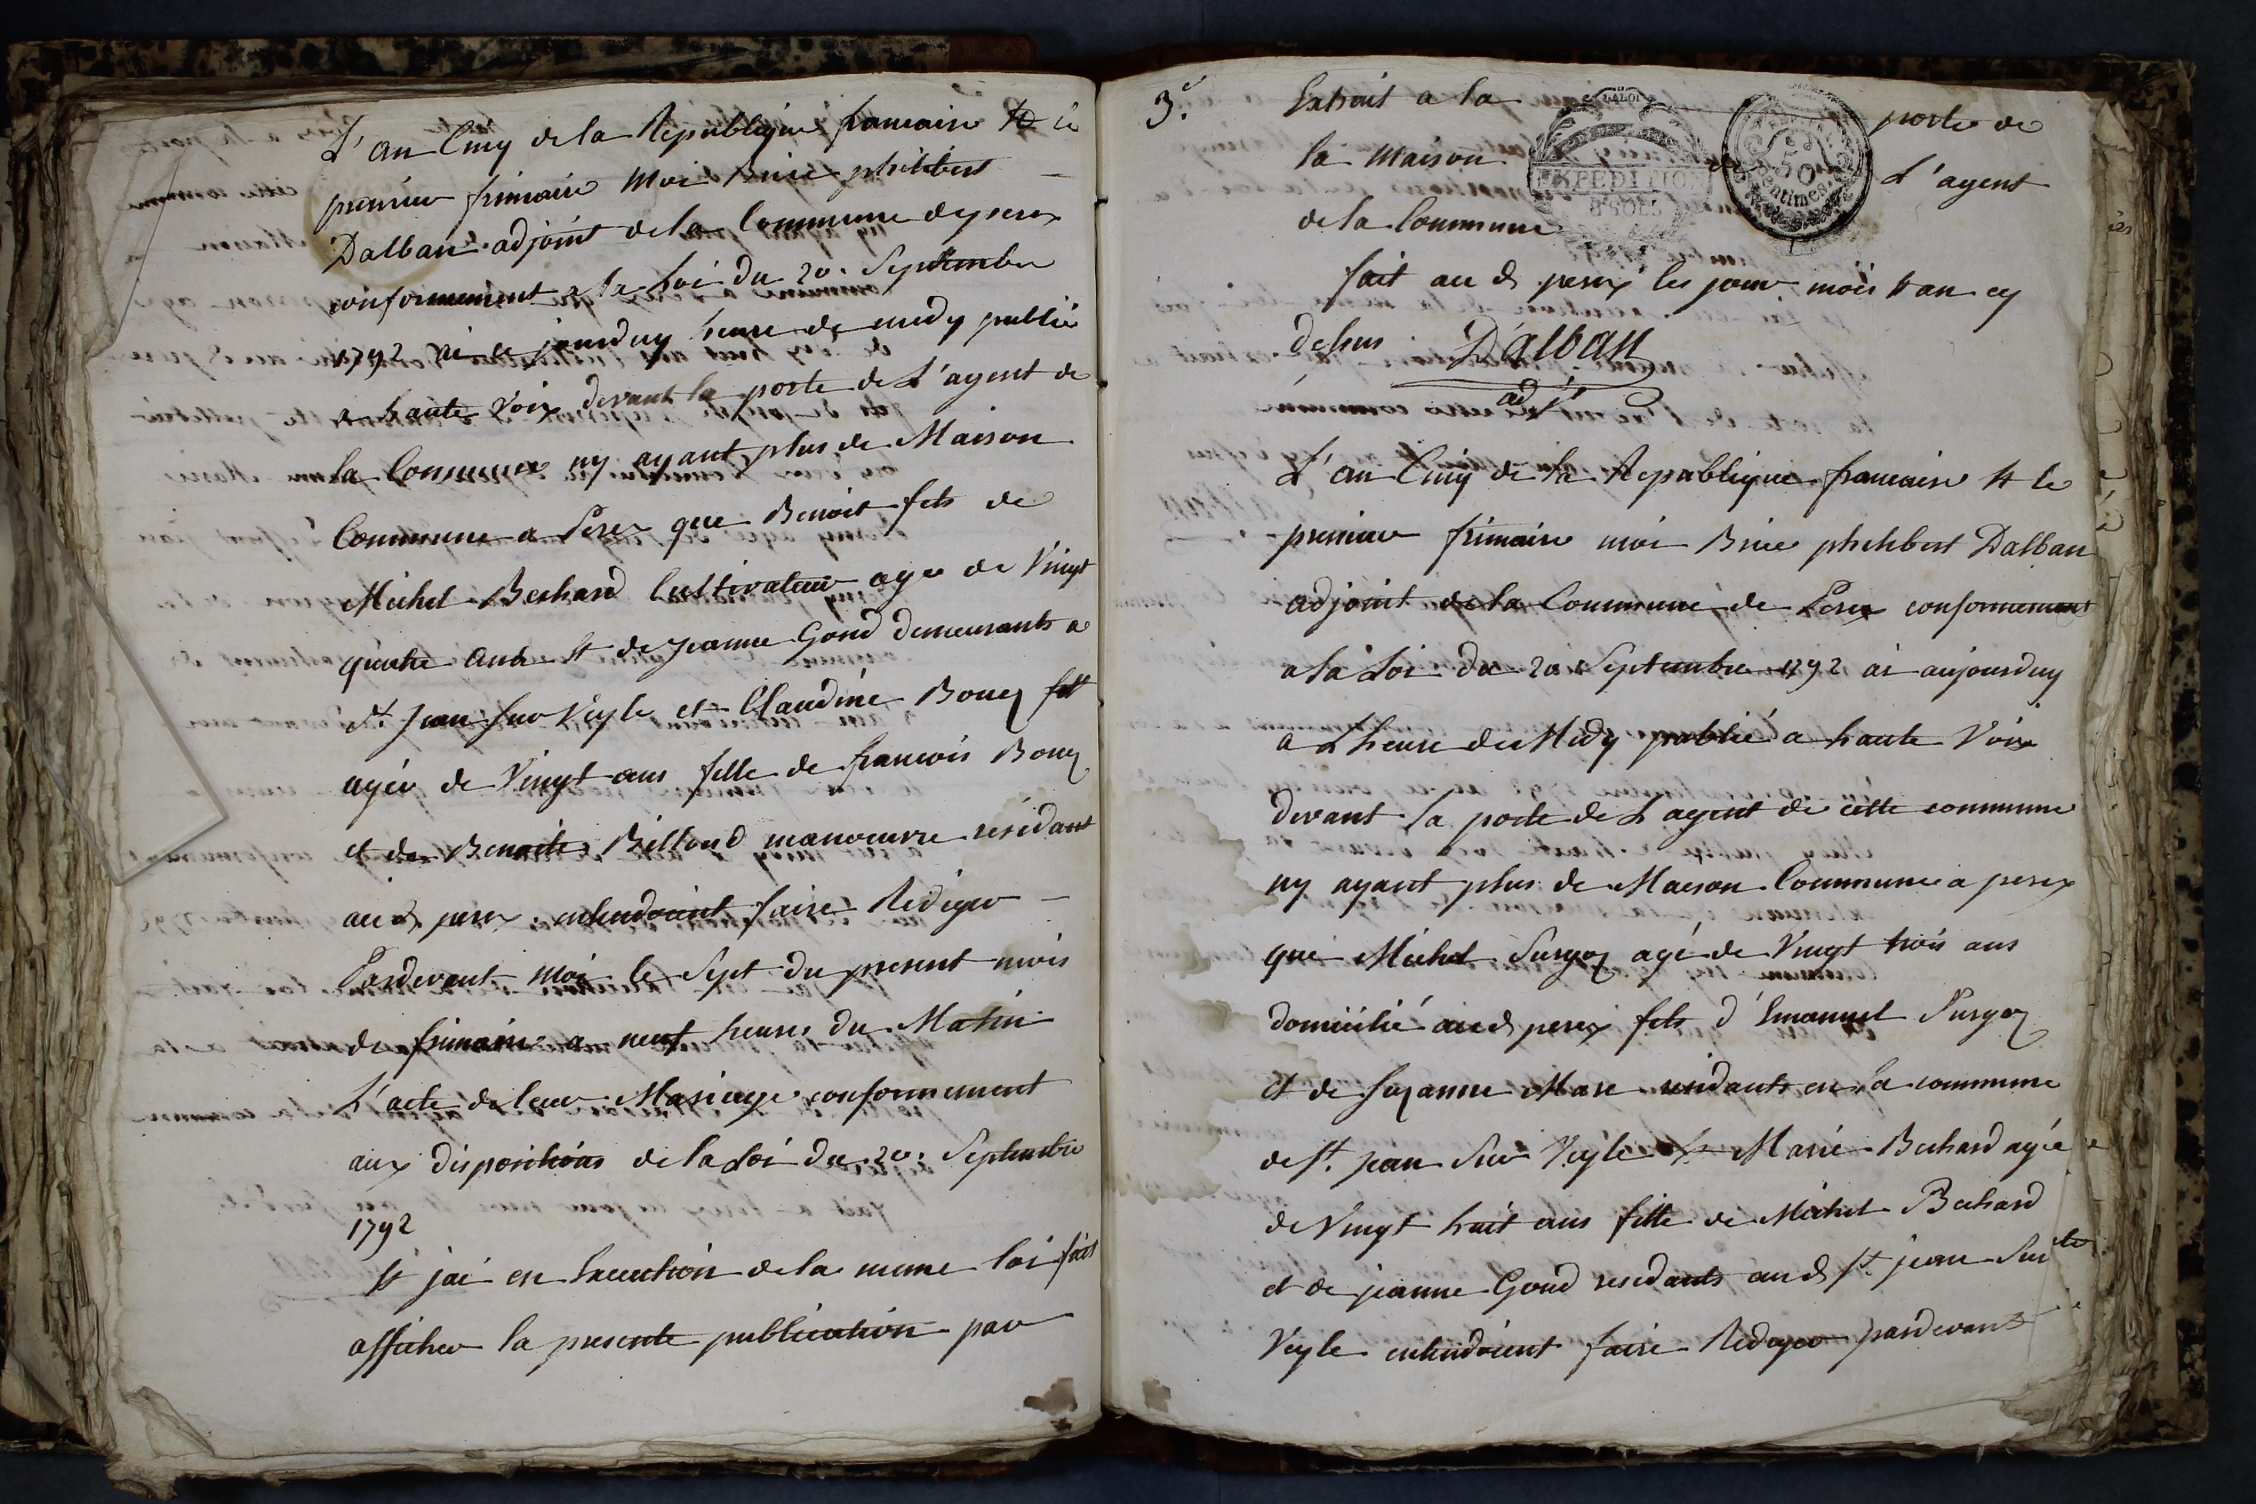 L'an Cinq de la Republique francaise & le
premier frimaire moi Brice philibert
Dalban adjoint de la Commune de perex
conformement a la Loi du 20. Septembre
1792 ai ce jourduy heure de midy publié
a haute voix devant la porte de L'agent de
la Commune ny ayant plus de Maison
Commune a Perex que Benoit fils de
Michel Bechard Cultivateur age de Vingt
quatre ans & de jeanne Gond demeurants a
St. jean sur Veyle et Claudine Bouq
agée de Vingt ans fille de francois Bouq
et de Benoite Billoud manoeuvre résidant
aud perex entendoient faire Rédiger
Pardevant moi le Sept du present mois
de frimaire a neuf heures du Matin
L'acte de leur Mariage conformement
aux dispositions de la Loi du 20. Septembre
1792
& jai en Execution de la meme loi fait
afficher la presente publication par
3.e
Extrait a la porte de
la maison de L'agent
de la Commune
LA LOI
EXPEDITION
8 SOLS
50
Centimes
fait au d perex les jour mois & an cy
dessus Dalban
adjt
L'an Cinq de la Republique francaise & le
premier frimaire moi Brice philibert Dalban
adjoint de la Commune de Perex conformement
a la Loi du 20 Septembre 1792 ai aujourduy
a Lheure de Midy publié a haute Voix
devant la porte de Lagent de cette commune
ny ayant plus de Maison Commune a perex
que Michel Surgoz agé de Vingt trois ans
domicilié aud perex fils d'Emanuel Surgoz
et de Suzanne Mare residants en la commune
de St. jean sur Veyle & Marie Bechard agée
de Vingt huit ans fille de Michel Bechard
et de jeanne Gond residants aud St. jean Sur
Veyle entendoient faire Rediger pardevant